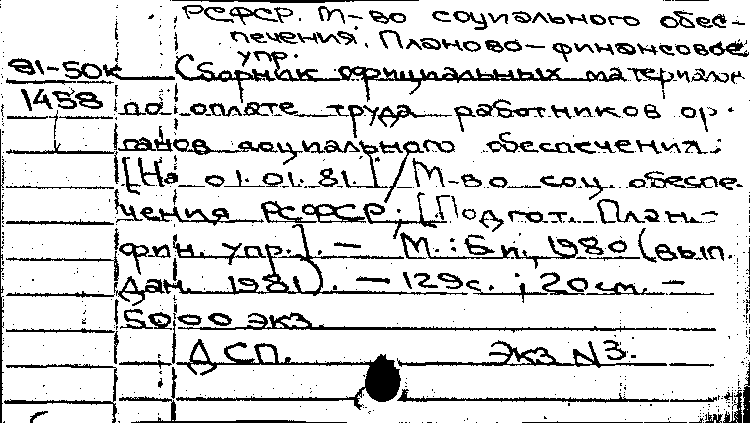 РСФСР. М-во социального обес-
печения. Планово-финансовое
упр.
81-50к Сборник официальных материалов
1458 по оплате труда работников ор-
ганов социального обеспечения:
[На 01.01.81.] / М-во соц. обеспе-
чения РСФСР; [Подгот. План.-
фин. упр.]. — М.: Б.и., 1980 (вып.
дан. 1981). — 129с. ; 20см. —
5000 экз.
ДСП. Экз N3.